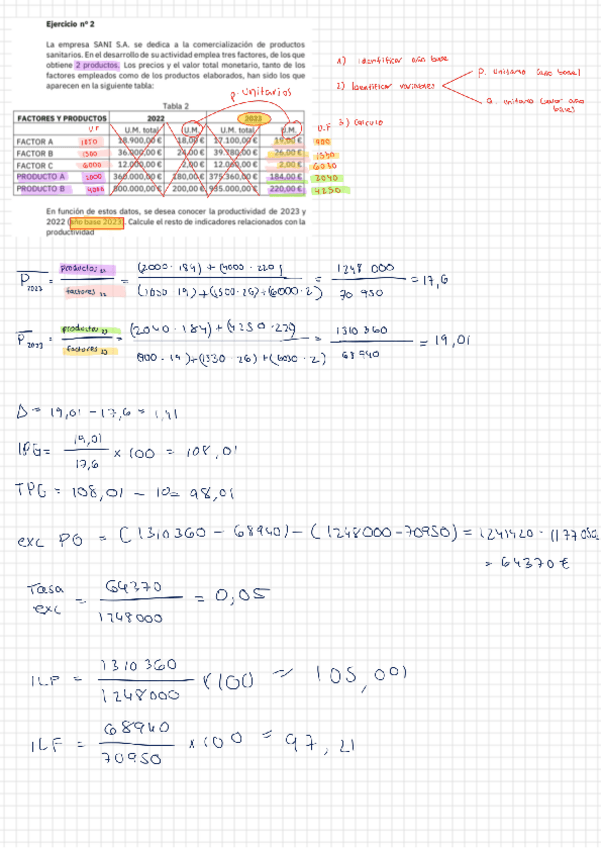 Ejercicio nº 2
La empresa SANI S.A. se dedica a la comercialización de productos
sanitarios. En el desarrollo de su actividad emplea tres factores, de los que
obtiene 2 productos. Los precios y el valor total monetario, tanto de los
factores empleados como de los productos elaborados, han sido los que
aparecen en la siguiente tabla:
1) identificar año base
2) Identificar variables
P. unitario (año base)
Q. unitario (valor año base)
3) Calculo
p. unitarios
Tabla 2
FACTORES Y PRODUCTOS 2022 2023
U.F U.M. total U.M. U.M. total U.M. U.F
FACTOR A 1050 18.900,00 € 18,00 € 17.100,00 € 19,00 € 900
FACTOR B 1500 36.000,00 € 24,00 € 39.780,00 € 26,00 € 1530
FACTOR C 6000 12.000,00 € 2,00 € 12.060,00 € 2,00 € 6030
PRODUCTO A 2000 360.000,00 € 180,00 € 375.360,00 € 184,00 € 2040
PRODUCTO B 4000 800.000,00 € 200,00 € 935.000,00 € 220,00 € 4250
En función de estos datos, se desea conocer la productividad de 2023 y
2022 (año base 2023). Calcule el resto de indicadores relacionados con la
productividad
P 2023 = productos 22 / factores 22 = (2000·184) + (4000·220) / (1050·19)+(1500·26)+(6000·2) = 1248 000 / 70 950 = 17,6
P 2023 = productos 23 / factores 23 = (2040·184) + (4250·220) / (900·19)+(1530·26)+(6030·2) = 1310 360 / 68940 = 19,01
Δ = 19,01 - 17,6 = 1,41
IPG = 19,01 / 17,6 x 100 = 108,01
TPG = 108,01 - 10= 98,01
exc PG = (1310360 - 68940) - (1248000-70950) = 1241420 - (1177050
= 64370 €
Tasa exc = 64370 / 1248000 = 0,05
ILP = 1310360 / 1248000 x100 = 105,001
ILF = 68940 / 70950 x 100 = 97,21